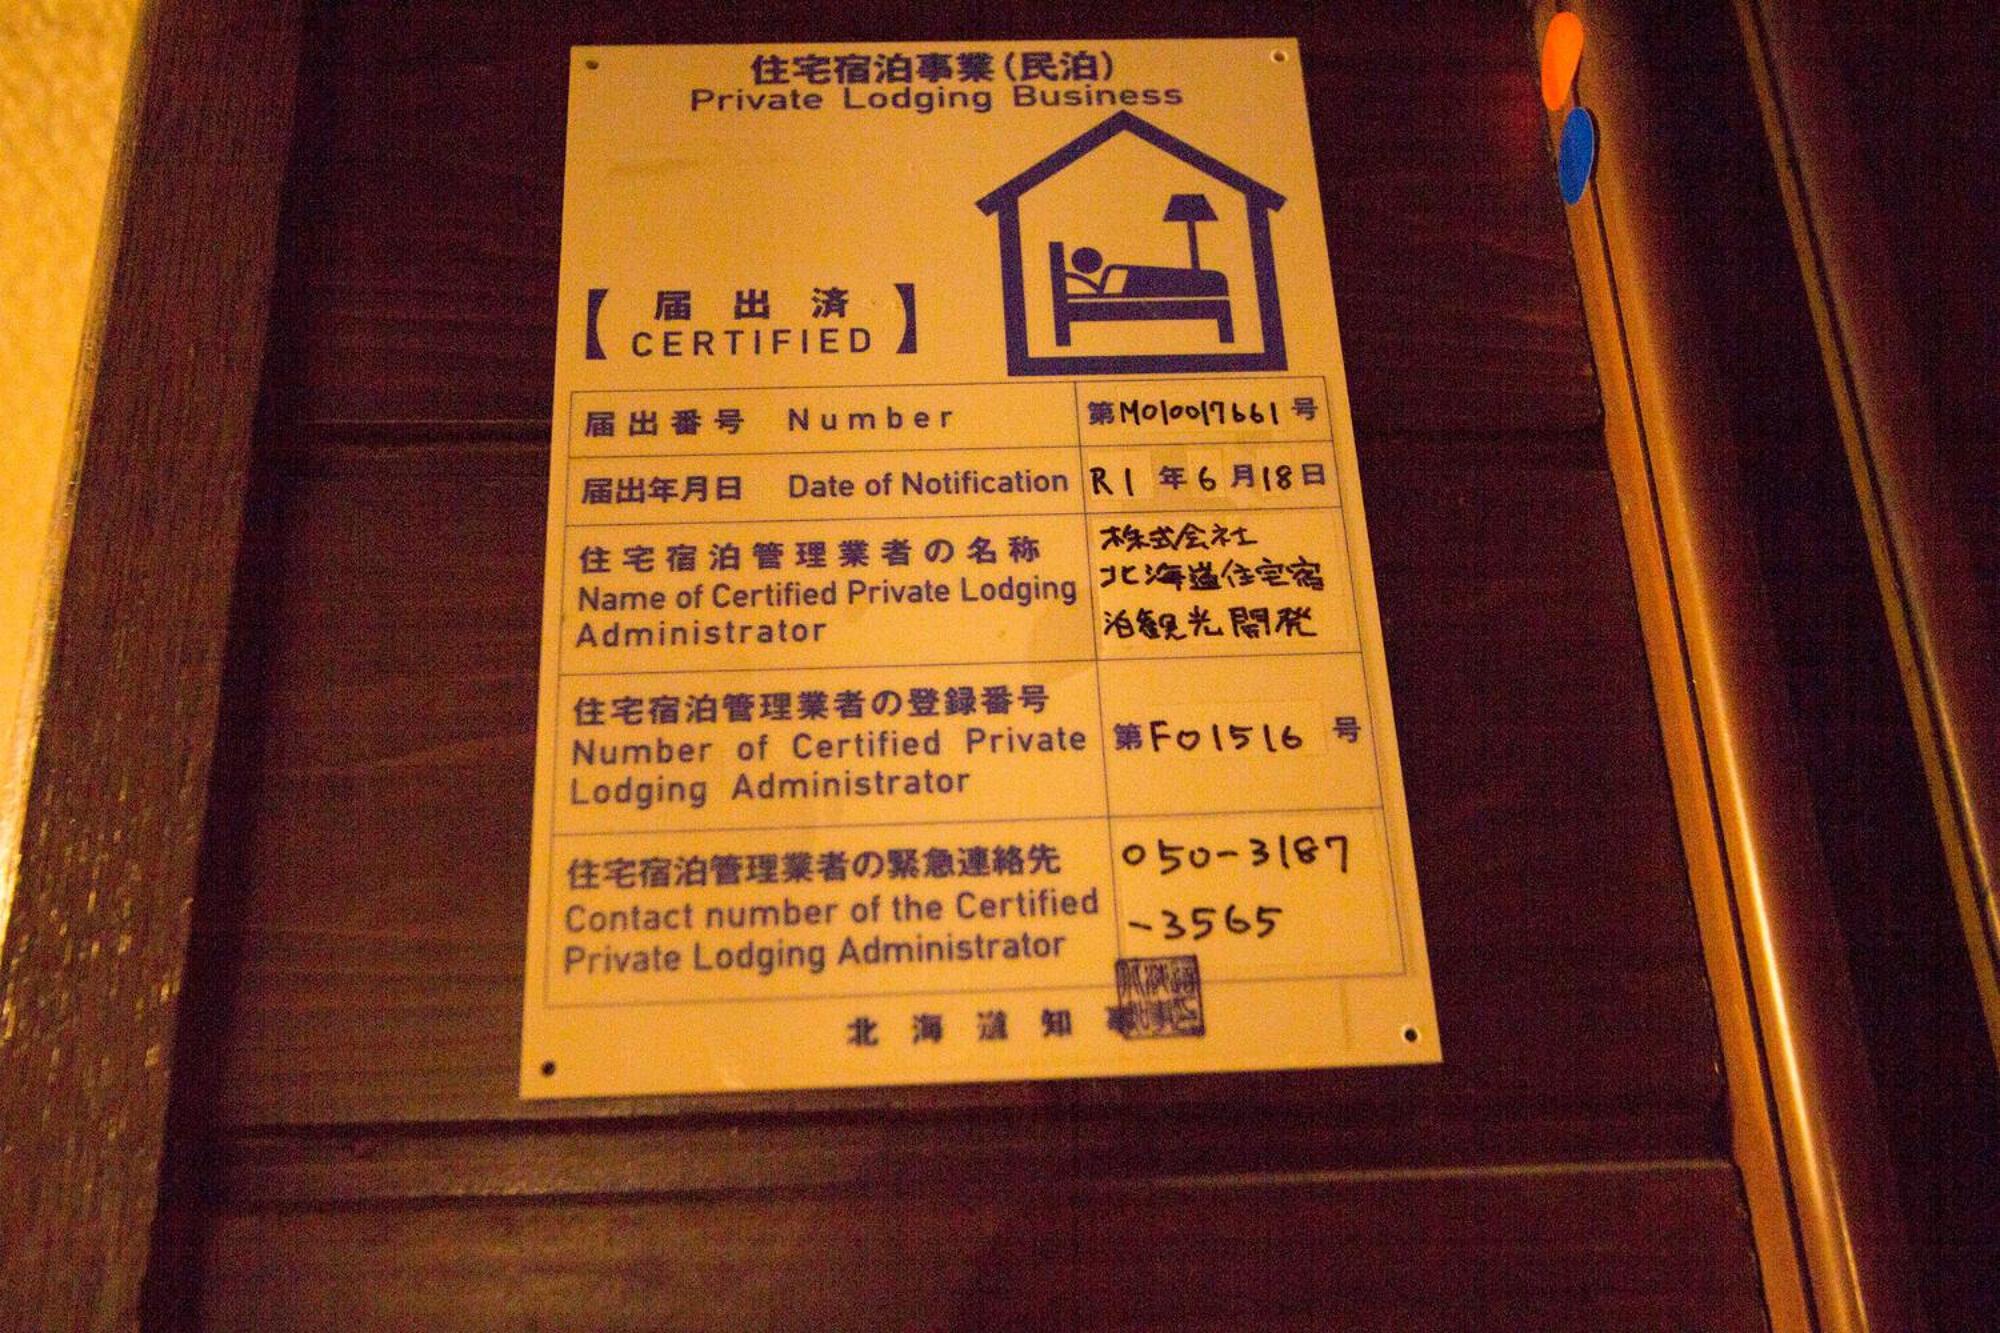 住宅宿泊事業(民泊)
Private Lodging Business
【届出済】
CERTIFIED
届出番号 Number 第M010017661号
届出年月日 Date of Notification R1年6月18日
住宅宿泊管理業者の名称
Name of Certified Private Lodging
Administrator
株式会社
北海道住宅宿
泊観光開発
住宅宿泊管理業者の登録番号
Number of Certified Private
Lodging Administrator
第F01516号
住宅宿泊管理業者の緊急連絡先
Contact number of the Certified
Private Lodging Administrator
050-3187
-3565
北海道知事